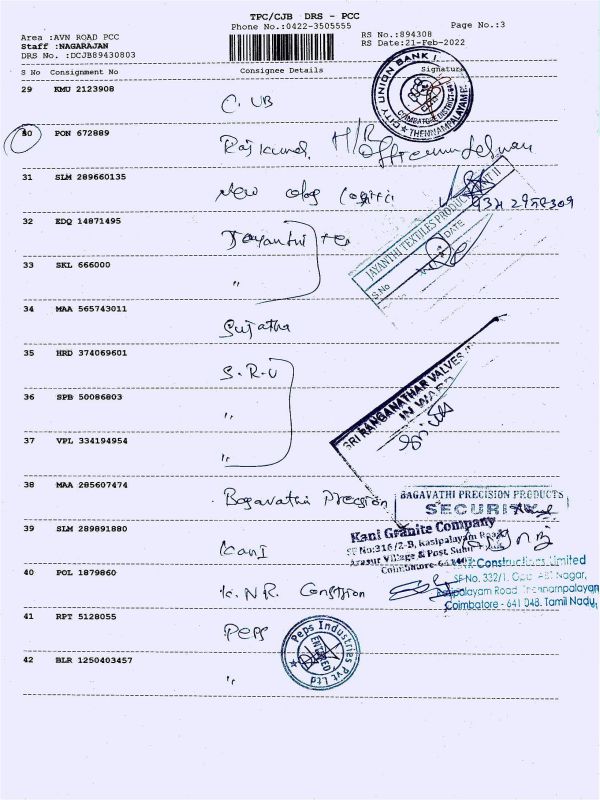 TPC/CJB DRS - PCC
Phone No.:0422-3505555
Page No.:3
Area :AVN ROAD PCC
RS No.:894308
Staff :NAGARAJAN
RS Date:21-Feb-2022
DRS No. :DCJB89430803
S No Consignment No Consignee Details Signature
29 KMU 2123908 C. UB
CITY UNION BANK
COIMBATORE DISTRICT
THENNAMPALAYAM
30 PON 672889 Raj kumar H/B
31 SLM 289660135 New
32 EDQ 14871495 Jayanthi tex
JAYANTHI TEXTILES PRODUCT UNIT II
S.No DATE
33 SKL 666000 "
34 MAA 565743011 Sujatha
35 HRD 374069601 S.R.V
SRI RANGANATHAR VALVES
IN WARD
36 SPB 50086803 "
37 VPL 334194954 "
38 MAA 285607474 Bagavathi Precision
BAGAVATHI PRECISION PRODUCTS
SECURITY
39 SLM 289891880 Kani
Kani Granite Company
SF No:316/2-B, Kasipalayam Road
Arasur Village & Post, Sulur
Coimbatore-641407
40 POL 1879860 K.N.R.
Constructions Limited
SF No. 332/1, Opp. ABT Nagar,
Kasipalayam Road, Thennampalayam
Coimbatore - 641 048. Tamil Nadu
41 RPT 5128055 Peps
Peps Industries Pvt Ltd
ENTERED
42 BLR 1250403457 "